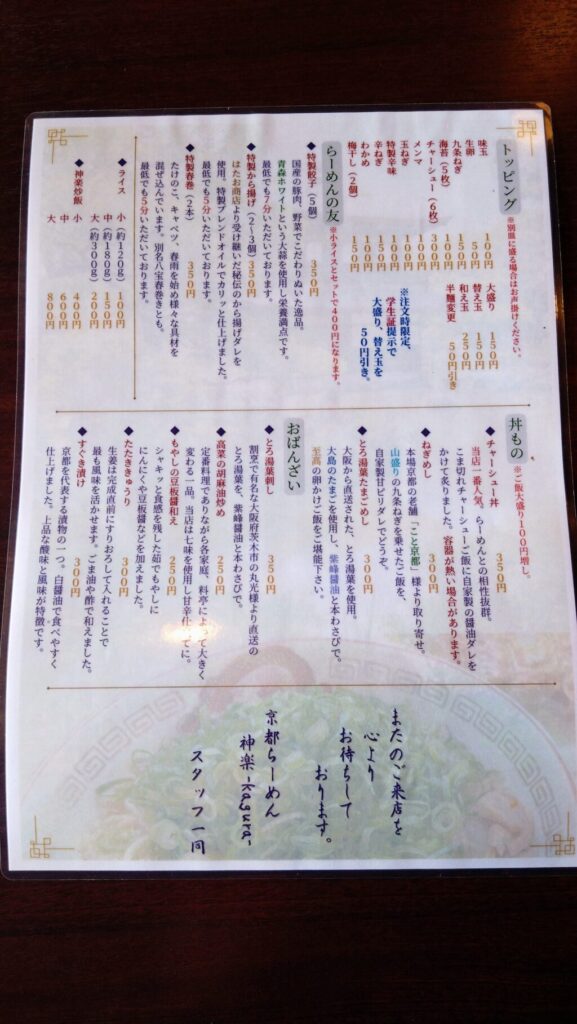 トッピング ※別皿に盛る場合はお声掛けください。
味玉 100円
生卵 50円
九条ねぎ 150円
海苔(5枚) 100円
チャーシュー(6枚) 300円
メンマ 100円
玉ねぎ 100円
特製辛味 100円
辛ねぎ 150円
わかめ 100円
梅干し(2個) 150円
大盛り 150円
替え玉 150円
和え玉 250円
半麺変更 50円引き
※注文時限定、
学生証提示で
大盛り、替え玉を
50円引き。
らーめんの友 ※小ライスとセットで400円になります。
◆特製餃子(5個) 350円
国産の豚肉、野菜でこだわりぬいた逸品。
青森ホワイトという大蒜を使用し栄養満点です。
最低でも7分いただいております。
◆特製から揚げ(2~3個) 350円
はたお商店より受け継いだ秘伝のから揚げダレを
使用。特製ブレンドオイルでカリッと仕上げました。
最低でも5分いただいております。
◆特製春巻(2本) 350円
たけのこ、キャベツ、春雨を始め様々な具材を
混ぜ込んでいます。別名八宝春巻きとも。
最低でも5分いただいております。
◆ライス 小(約120g) 100円
中(約180g) 150円
大(約300g) 200円
◆神楽炒飯 小 400円
中 600円
大 800円
丼もの ※ご飯大盛り100円増し。
◆チャーシュー丼 350円
当店一番人気。らーめんとの相性抜群。
こま切れチャーシューご飯に自家製の醤油ダレを
かけて炙りました。容器が熱い場合があります。
◆ねぎめし 300円
本場京都の老舗「こと京都」様より取り寄せ。
山盛りの九条ねぎを乗せたご飯を、
自家製甘ピリダレでどうぞ。
◆とろ湯葉たまごめし 300円
大阪から直送された、とろ湯葉を使用。
大島のたまごを使用し、紫峰醤油と本わさびで。
至高の卵かけご飯をご堪能下さい。
おばんざい
◆とろ湯葉刺し 350円
割烹で有名な大阪府茨木市の丸光様より直送の
とろ湯葉を、紫峰醤油と本わさびで。
◆高菜の胡麻油炒め 250円
定番料理でありながら各家庭、料亭によって大きく
変わる一品。当店は七味を使用し甘辛仕立てに。
◆もやしの豆板醤和え 250円
シャキッと食感を残した茹でもやしに
にんにくや豆板醤などを加えました。
◆たたききゅうり 300円
生姜は完成直前にすりおろして入れることで
最も風味を活かせます。ごま油や酢で和えました。
◆すぐき漬け 300円
京都を代表する漬物の一つ。白醤油で食べやすく
仕上げました。上品な酸味と風味が特徴です。
またのご来店を
心より
お待ちして
おります。
京都らーめん
神楽-kagura-
スタッフ一同